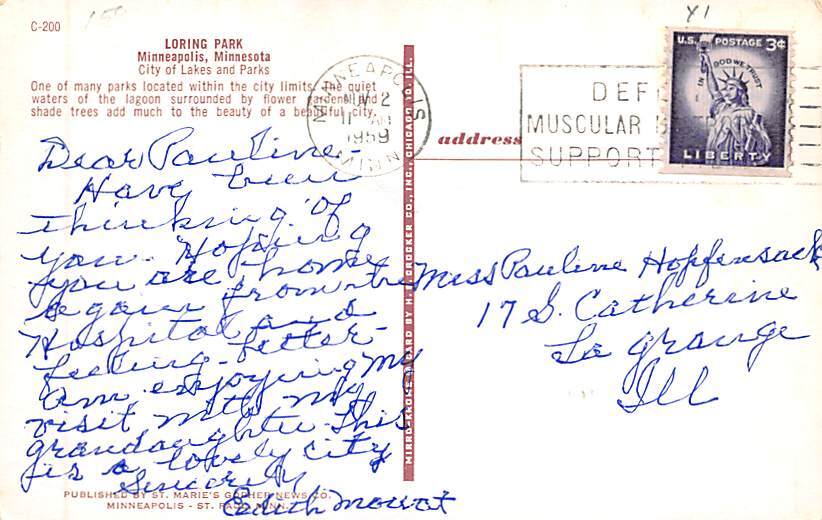 C-200
LORING PARK
Minneapolis, Minnesota
City of Lakes and Parks
One of many parks located within the city limits. The quiet
waters of the lagoon surrounded by flower gardens and
shade trees add much to the beauty of a beautiful city.
Dear Pauline-
Have been
thinking of
you. Hoping
you are home
again from the
Hospital and
feeling better-
am enjoying my
visit with my
grandaughter this
is a lovely city
Sincerely
Edith Mowat
PUBLISHED BY ST. MARIE'S GOPHER NEWS CO.
MINNEAPOLIS - ST. PAUL, MINN.
MIRRO-KROME CARD BY H. S. CROCKER CO., INC., CHICAGO 10, ILL.
MINNEAPOLIS
NOV 2
11 AM
1959
MINN
address
XI
U.S. POSTAGE 3¢
IN GOD WE TRUST
LIBERTY
DEF
MUSCULAR
SUPPORT
Miss Pauline Hopfensack
17 S. Catherine
La grange
Ill